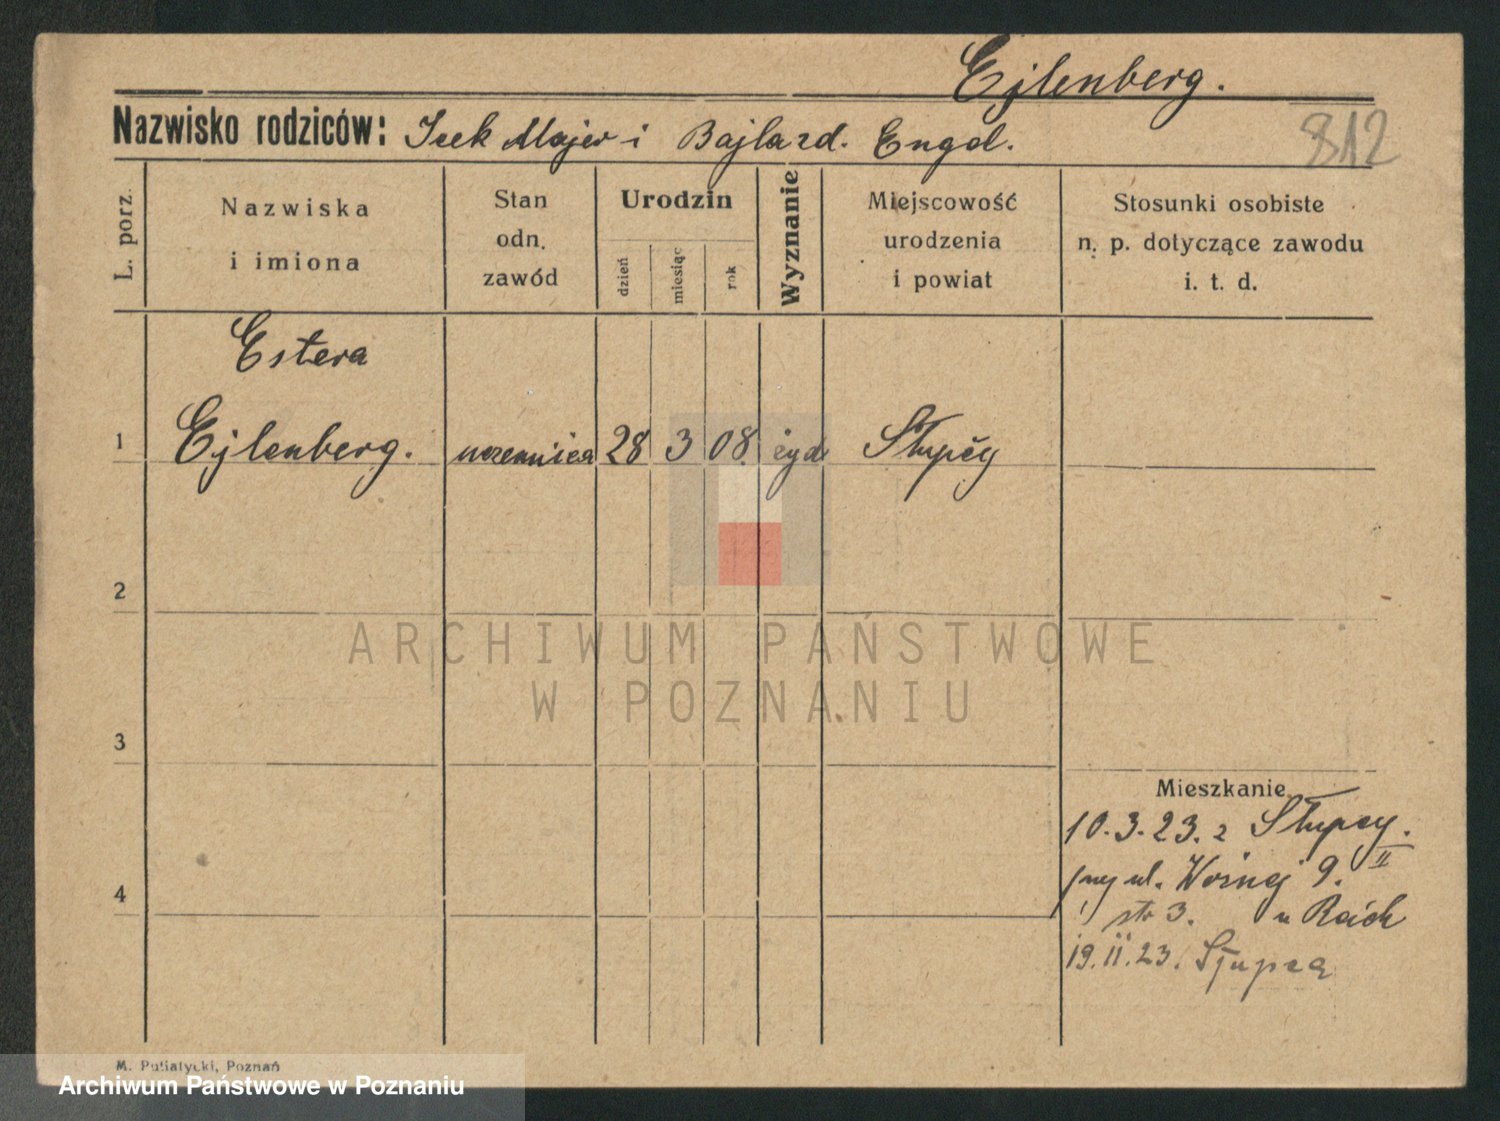 Ejlenberg.
Nazwisko rodziców: Icek Majer i Bajla zd. Engel.
812
L. porz.
Nazwiska
i imiona
Stan
odn.
zawód
Urodzin
dzień
miesiąc
rok
Wyznanie
Miejscowość
urodzenia
i powiat
Stosunki osobiste
n. p. dotyczące zawodu
i. t. d.
Estera
1 Ejlenberg. uczennica 28 3 08. żyd.
2
3
4
Mieszkanie
10.3.23. z Słupcy.
przy ul. Woźnej 9. II
u
19.11.23. Słupca
ARCHIWUM PAŃSTWOWE
W POZNANIU
M. Putiatycki, Poznań
Archiwum Państwowe w Poznaniu